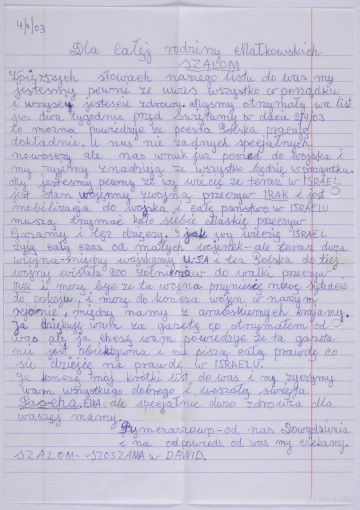 4/4/03
Dla całej rodziny Małkowskich
SZALOM
W pierszych słowach naszego listu do was my
jestesmy pewni ze uwas wszystko w porządku
i wszyscy jestescie zdrowy. Myśmy otrzymały wa list
juz dwa tygodnie przed świętamy w dniu 2/4/03
to mozna powiedzec ze poczta Polska pracuje
dokładnie. U nas nie zadnych specjalnych
nowoscy ale nas wnuk juz poszed do wojska i
my zyjemy z nadzieją ze wszystko będzie w porządku.
My jestesmy pewny ze wy wiecie ze teraz w ISRAEL
jest stan wojenny z wojną przeciw IRAK i jest
mobilizacja do wojska i całe panstwo w ISRAELU
muszą trzymać koło siebie maski przeciw
Gazamy i tez dzieczy. jak wy wiecie ISRAEL
zyją cały czas od małych wojenek - ale teraz duza
wojna - między wojskamy USA i tez Polska do tiej
wojny wisłała 200 zołnierów do walki przeciw
IRAK i moze byc ze ta wojna przyniesie nowe
do pokoju, i moze do konca wojen w naszym
rejonie, między namy z arabskiemych krajamy.
Ja dziękuję wam za gazetę co otrzymałem od
was ale ja chcę wam powiedzec ze ta gazeta
nie jest obiektywna i nie piszą całą prawdę co
się dzieje na prawdę w ISRAELU.
Ja konczę mój krótki list do was i my zyczymy
wam wszystkiego dobrego i wesołą swięta
Pascha, EWA ale specjalnie duzo zdrowia dla
waszej mamy.
od nas Dowydzenia
i na odpowieds od was my czekamy.
SZALOM - SZOSZANA w DAWID.